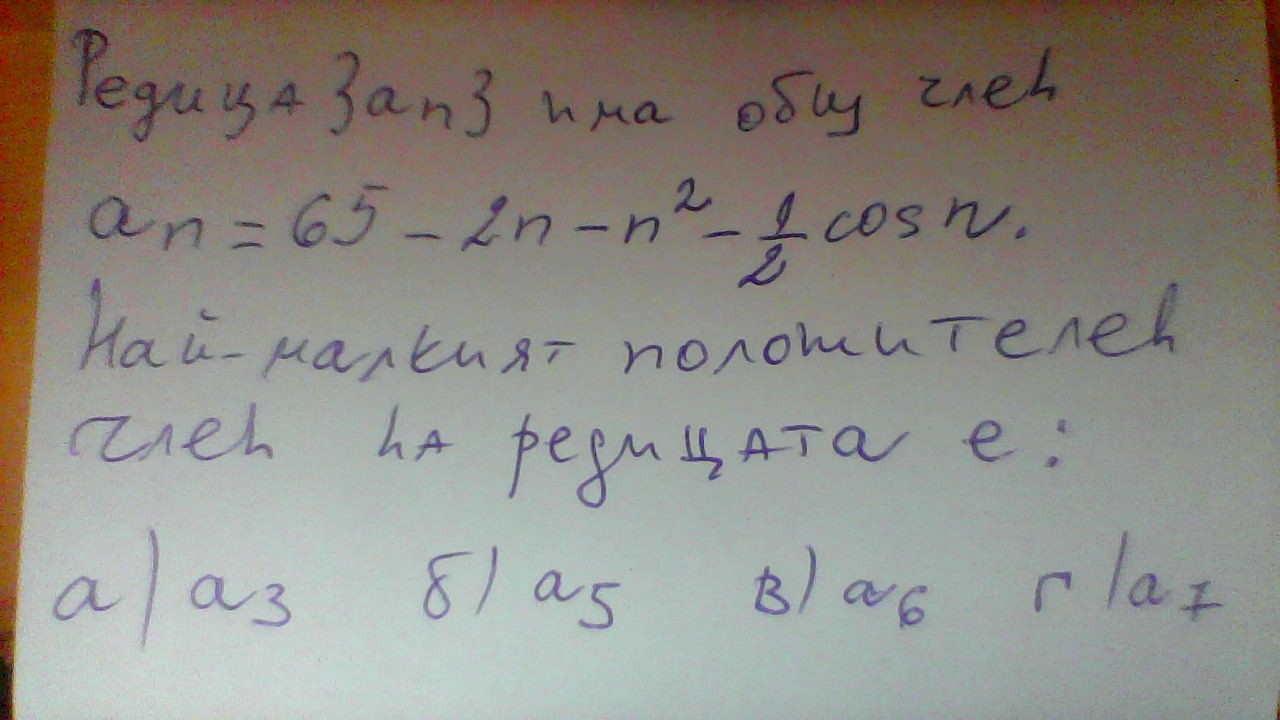 Редица {an} има общ член
an = 65 - 2n - n² - 1/2 cos n.
Най-малкият положителен
член на редицата е:
а) a3 б) a5 в) a6 г) a7